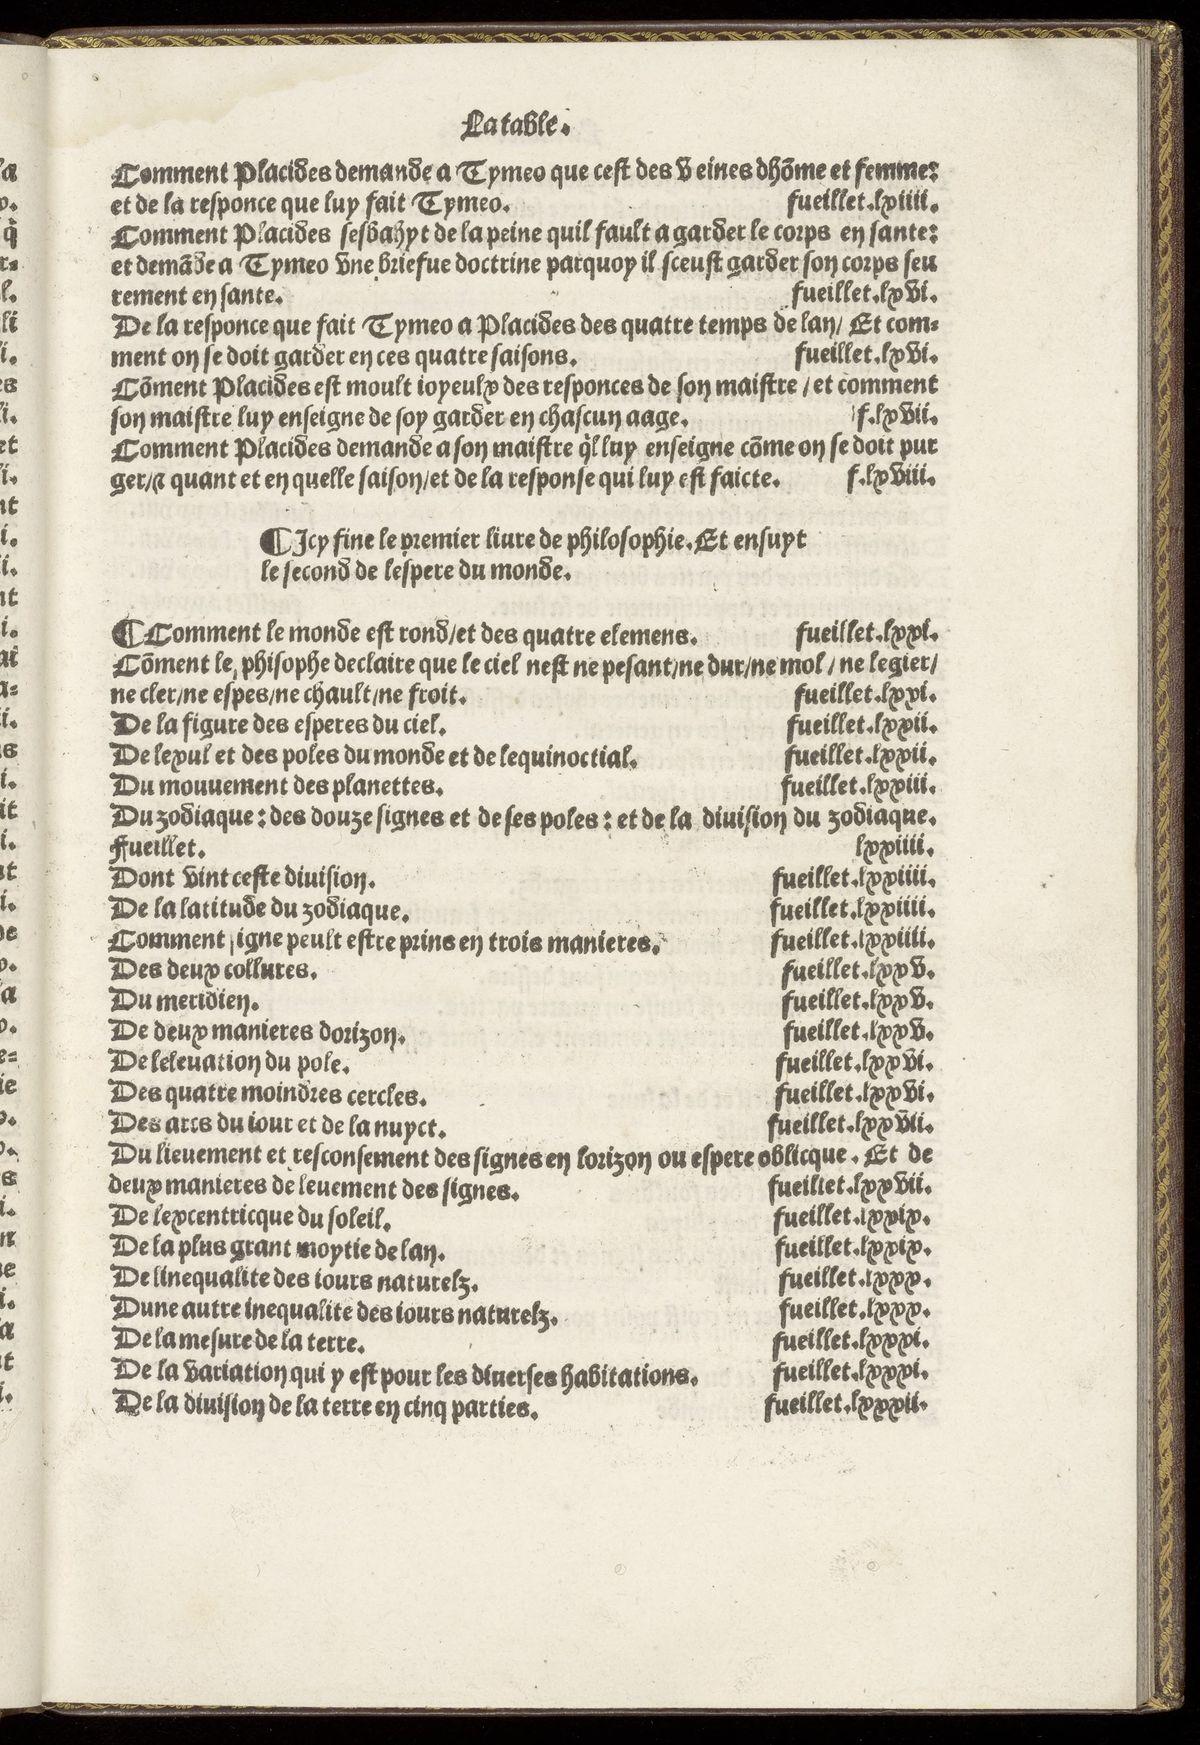 La table.
Comment Placides demande a Tymeo que cest des veines dhōme et femme:
et de la responce que luy fait Tymeo. fueillet.lxiiii.
Comment Placides sesbahyt de la peine quil fault a garder le corps en sante:
et demāde a Tymeo vne briefue doctrine parquoy il sceust garder son corps seu
rement en sante. fueillet.lxvi.
De la responce que fait Tymeo a Placides des quatre temps de lan/ Et com-
ment on se doit garder en ces quatre saisons. fueillet.lxvi.
Cōment Placides est moult ioyeulx des responces de son maistre / et comment
son maistre luy enseigne de soy garder en chascun aage. f.lxvii.
Comment Placides demande a son maistre q̄l luy enseigne cōme on se doit pur
ger/⁊ quant et en quelle saison/et de la response qui luy est faicte. f.lxviii.
¶Icy fine le premier liure de philosophie.Et ensuyt
le second de lespere du monde.
¶Comment le monde est rond/et des quatre elemens. fueillet.lxxi.
Cōment le phisophe declaire que le ciel nest ne pesant/ne dur/ne mol / ne legier/
ne cler/ne espes/ne chault/ne froit. fueillet.lxxi.
De la figure des esperes du ciel. fueillet.lxxii.
De lexul et des poles du monde et de lequinoctial. fueillet.lxxii.
Du mouuement des planettes. fueillet.lxxiii.
Du zodiaque: des douze signes et de ses poles: et de la diuision du zodiaque.
Fueillet. lxxiiii.
Dont vint ceste diuision. fueillet.lxxiiii.
De la latitude du zodiaque. fueillet.lxxiiii.
Comment signe peult estre prins en trois manieres. fueillet.lxxiiii.
Des deux collures. fueillet.lxxv.
Du meridien. fueillet.lxxv.
De deux manieres dorizon. fueillet.lxxv.
De leleuation du pole. fueillet.lxxvi.
Des quatre moindres cercles. fueillet.lxxvi.
Des arcs du iour et de la nuyct. fueillet.lxxvii.
Du lieuement et resconsement des signes en lorizon ou espere oblicque. Et de
deux manieres de leuement des signes. fueillet.lxxvii.
De lexcentricque du soleil. fueillet.lxxix.
De la plus grant moytie de lan. fueillet.lxxix.
De linequalite des iours naturelz. fueillet.lxxx.
Dune autre inequalite des iours naturelz. fueillet.lxxx.
De la mesure de la terre. fueillet.lxxxi.
De la variation qui y est pour les diuerses habitations. fueillet.lxxxi.
De la diuision de la terre en cinq parties. fueillet.lxxxii.